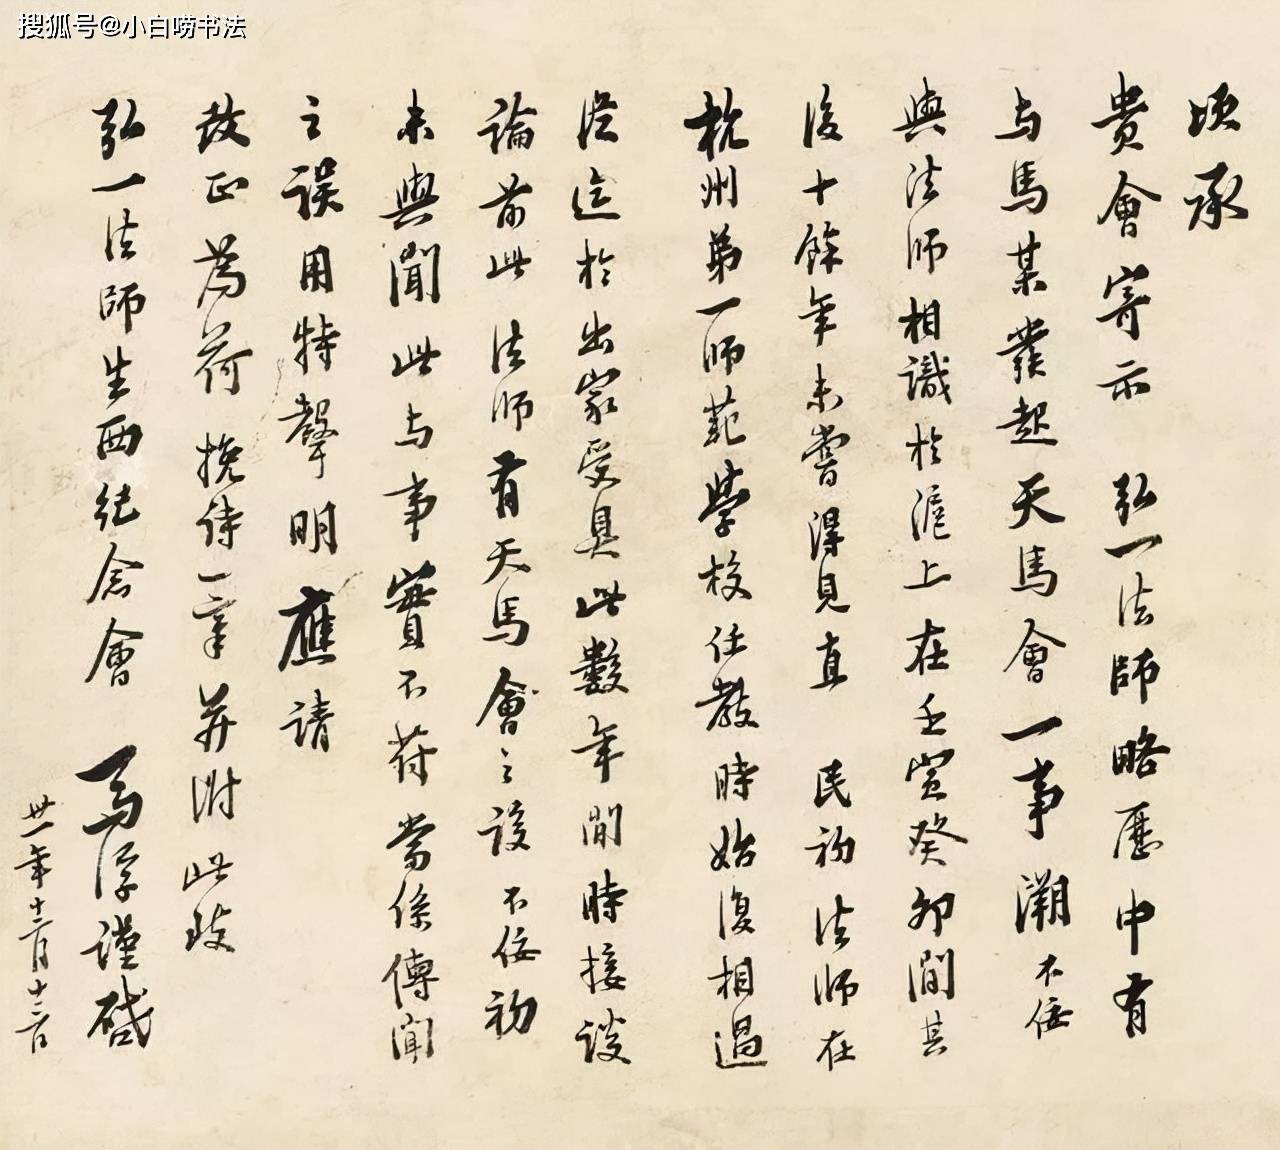 搜狐号@小白唠书法
頃承
貴會寄示 弘一法師略歷中有
与馬某發起天馬會一事溯不佞
與法師相識於滬上在壬寅癸卯間其
後十餘年未嘗得見直 民初法師在
杭州第一師範學校任教時始復相過
從迄於出家受具此數年間時接談
論前此 法師有天馬會之設不佞初
未與聞此与事實不符當係傳聞
之誤用特聲明應請
改正為荷 挽詩一章并附此致
弘一法師生西纪念會 馬浮謹啟
卅一年十二月十二日